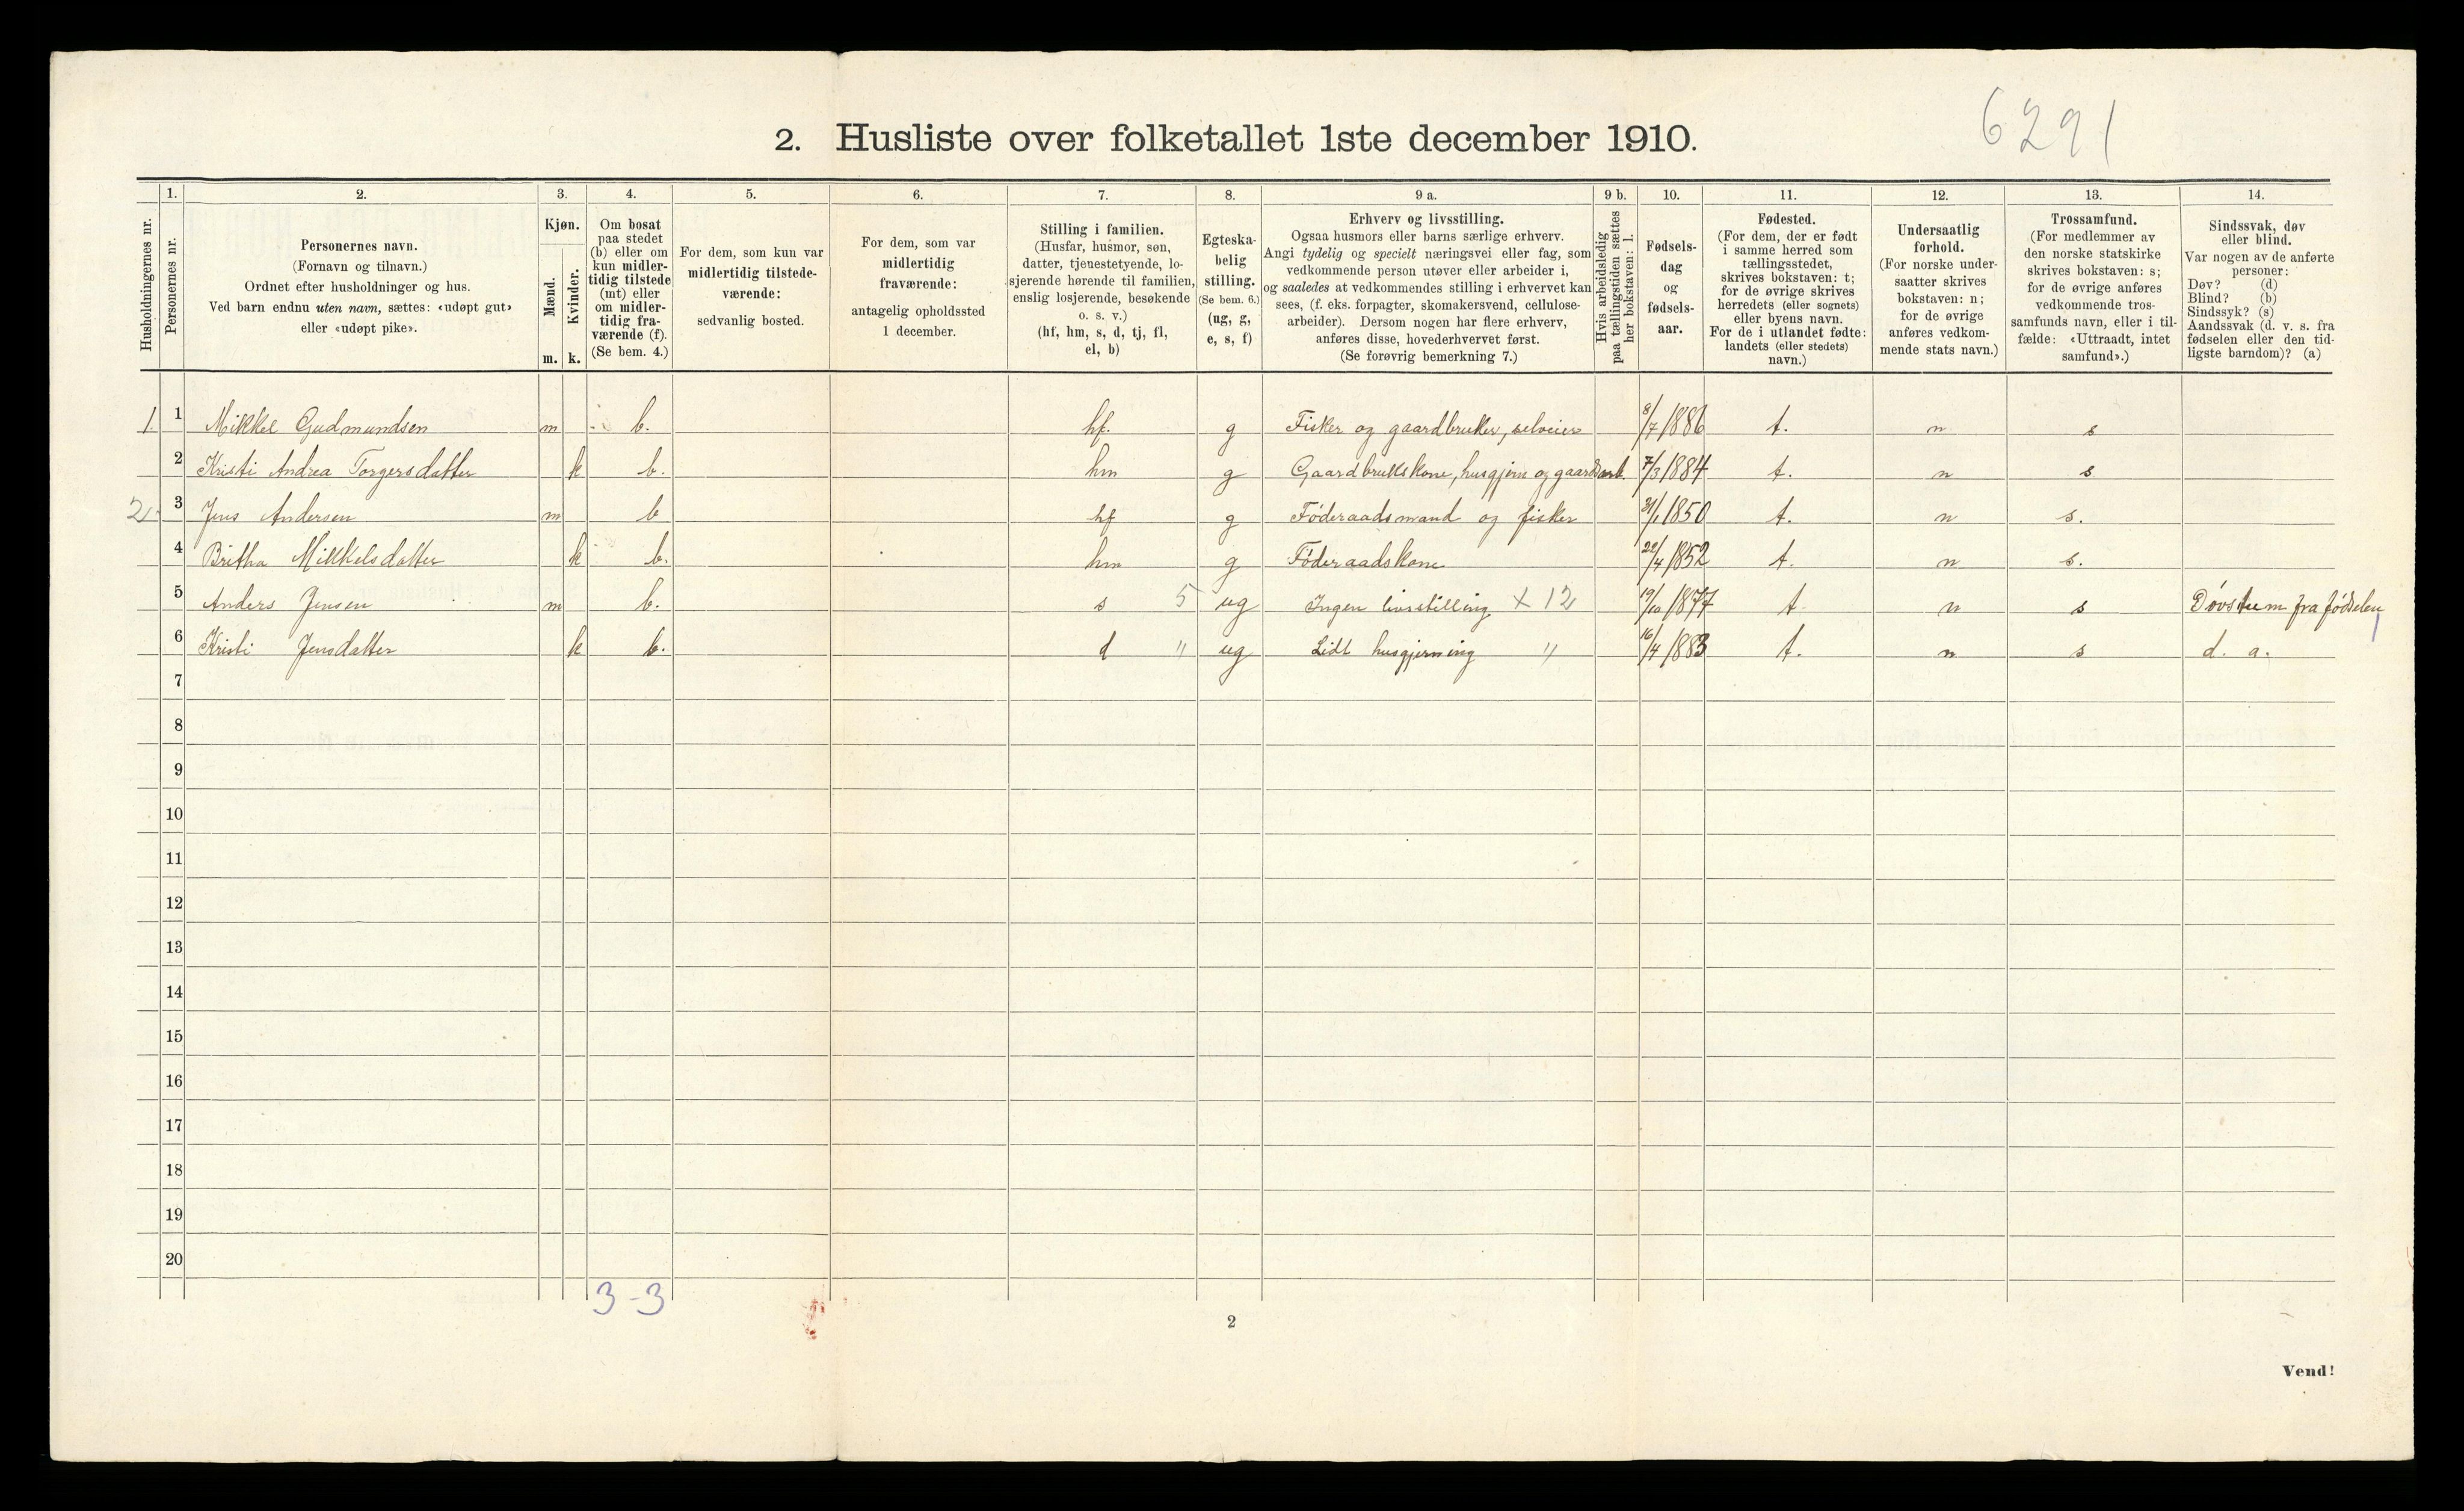 6291
2. Husliste over folketallet 1ste december 1910.
Husholdningernes nr.
1. Personernes nr.
2. Personernes navn. (Fornavn og tilnavn.) Ordnet efter husholdninger og hus. Ved barn endnu uten navn, sættes: «udøpt gut» eller «udøpt pike».
3. Kjøn. Mænd. m. Kvinder. k.
4. Om bosat paa stedet (b) eller om kun midlertidig tilstede (mt) eller om midlertidig fraværende (f). (Se bem. 4.)
5. For dem, som kun var midlertidig tilstedeværende: sedvanlig bosted.
6. For dem, som var midlertidig fraværende: antagelig opholdssted 1 december.
7. Stilling i familien. (Husfar, husmor, søn, datter, tjenestetyende, losjerende hørende til familien, enslig losjerende, besøkende o. s. v.) (hf, hm, s, d, tj, fl, el, b)
8. Egteskabelig stilling. (Se bem. 6.) (ug, g, e, s, f)
9 a. Erhverv og livsstilling. Ogsaa husmors eller barns særlige erhverv. Angi tydelig og specielt næringsvei eller fag, som vedkommende person utøver eller arbeider i, og saaledes at vedkommendes stilling i erhvervet kan sees, (f. eks. forpagter, skomakersvend, cellulosearbeider). Dersom nogen har flere erhverv, anføres disse, hovederhvervet først. (Se forøvrig bemerkning 7.)
9 b. Hvis arbeidsledig paa tællingstiden sættes her bokstaven: l.
10. Fødselsdag og fødselsaar.
11. Fødested. (For dem, der er født i samme herred som tællingsstedet, skrives bokstaven: t; for de øvrige skrives herredets (eller sognets) eller byens navn. For de i utlandet fødte: landets (eller stedets) navn.)
12. Undersaatlig forhold. (For norske undersaatter skrives bokstaven: n; for de øvrige anføres vedkommende stats navn.)
13. Trossamfund. (For medlemmer av den norske statskirke skrives bokstaven: s; for de øvrige anføres vedkommende trossamfunds navn, eller i tilfælde: «Uttraadt, intet samfund».)
14. Sindssvak, døv eller blind. Var nogen av de anførte personer: Døv? (d) Blind? (b) Sindssyk? (s) Aandssvak (d. v. s. fra fødselen eller den tidligste barndom)? (a)
1. 1 Mikkel Gudmundsen m b. hf. g Fisker og gaardbruker, selveier 8/7 1886 t. n s
2 Kristi Andrea Torgersdatter k b. hm g Gaardbrukskone, husgjern og gaardsarb. 7/3 1884 t. n s
2. 3 Jens Andersen m b hf g Føderaadsmand og fisker 31/1 1850 t. n s.
4 Britha Mikkelsdatter k b. hm g Føderaadskone 22/4 1852 t. n s.
5 Anders Jensen m b. s 5 ug Ingen livsstilling X 12 19/10 1877 t n s Døvstum fra fødselen
6 Kristi Jensdatter k b. d " ug Lidt husgjerning " 16/4 1883 t. n s d. a.
7
8
9
10
11
12
13
14
15
16
17
18
19
20
3 - 3
2
Vend!